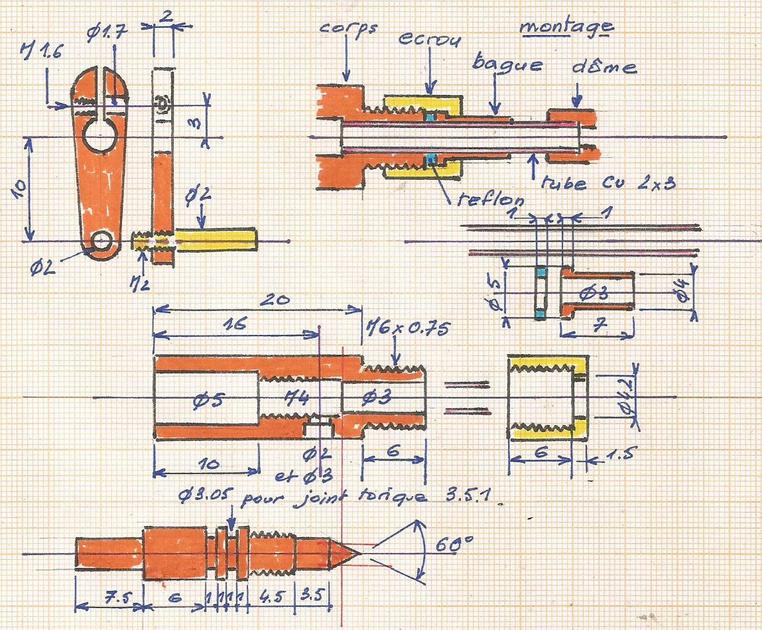 2
Ø1.7
M1.6
3
10
Ø2
Ø2
M2
corps
ecrou
montage
bague
dôme
teflon
tube Cu 2x3
1
1
Ø5
Ø3
Ø4
7
20
16
M6x0.75
Ø5
M4
Ø3
Ø4.2
10
Ø2
et Ø3
6
6
1.5
Ø3.05 pour joint torique 3.5.1
60°
7.5
6
1
1
1
1
4.5
3.5